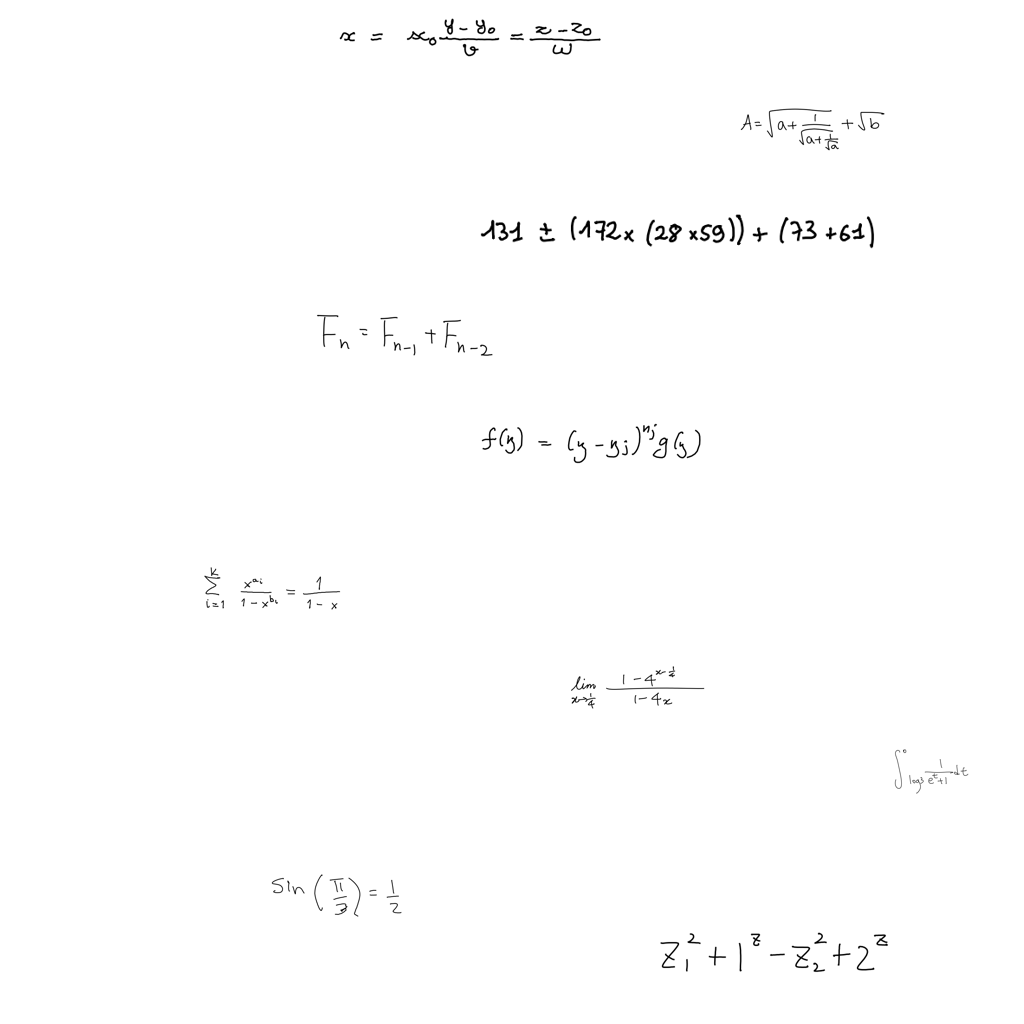 x = x_0 \frac{y - y_0}{v} = \frac{z - z_0}{w}
A = \sqrt{a + \frac{1}{\sqrt{a + \frac{1}{\sqrt{a}}}}} + \sqrt{b}
131 ± (172 × (28 × 59)) + (73 + 61)
F_n = F_{n-1} + F_{n-2}
f(y) = (y - y_j)^{n_j} g(y)
\sum_{i=1}^{k} \frac{x^{a_i}}{1 - x^{b_i}} = \frac{1}{1 - x}
\lim_{x \to \frac{1}{4}} \frac{1 - 4^{x - \frac{1}{4}}}{1 - 4x}
\int_{\log 3}^{0} \frac{1}{e^t + 1} dt
sin(\frac{π}{3}) = \frac{1}{2}
z_1^2 + 1^z - z_2^2 + 2^z